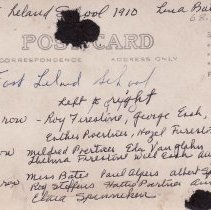 Leland School 1910 Lena Ba
68.
POST CARD
CORRESPONDENCE ADDRESS ONLY
East Leland School
Left to right
row - Roy Firestone, George Esch,
Esther Roertver, Hazel Firesto
row Mildred Roertver Edn Vanglahn
Thelma Firestone Will Esch
row Miss Bates Paul Alpers Albert
Roy Steffens Hattie Roertver
Clara Spinniken